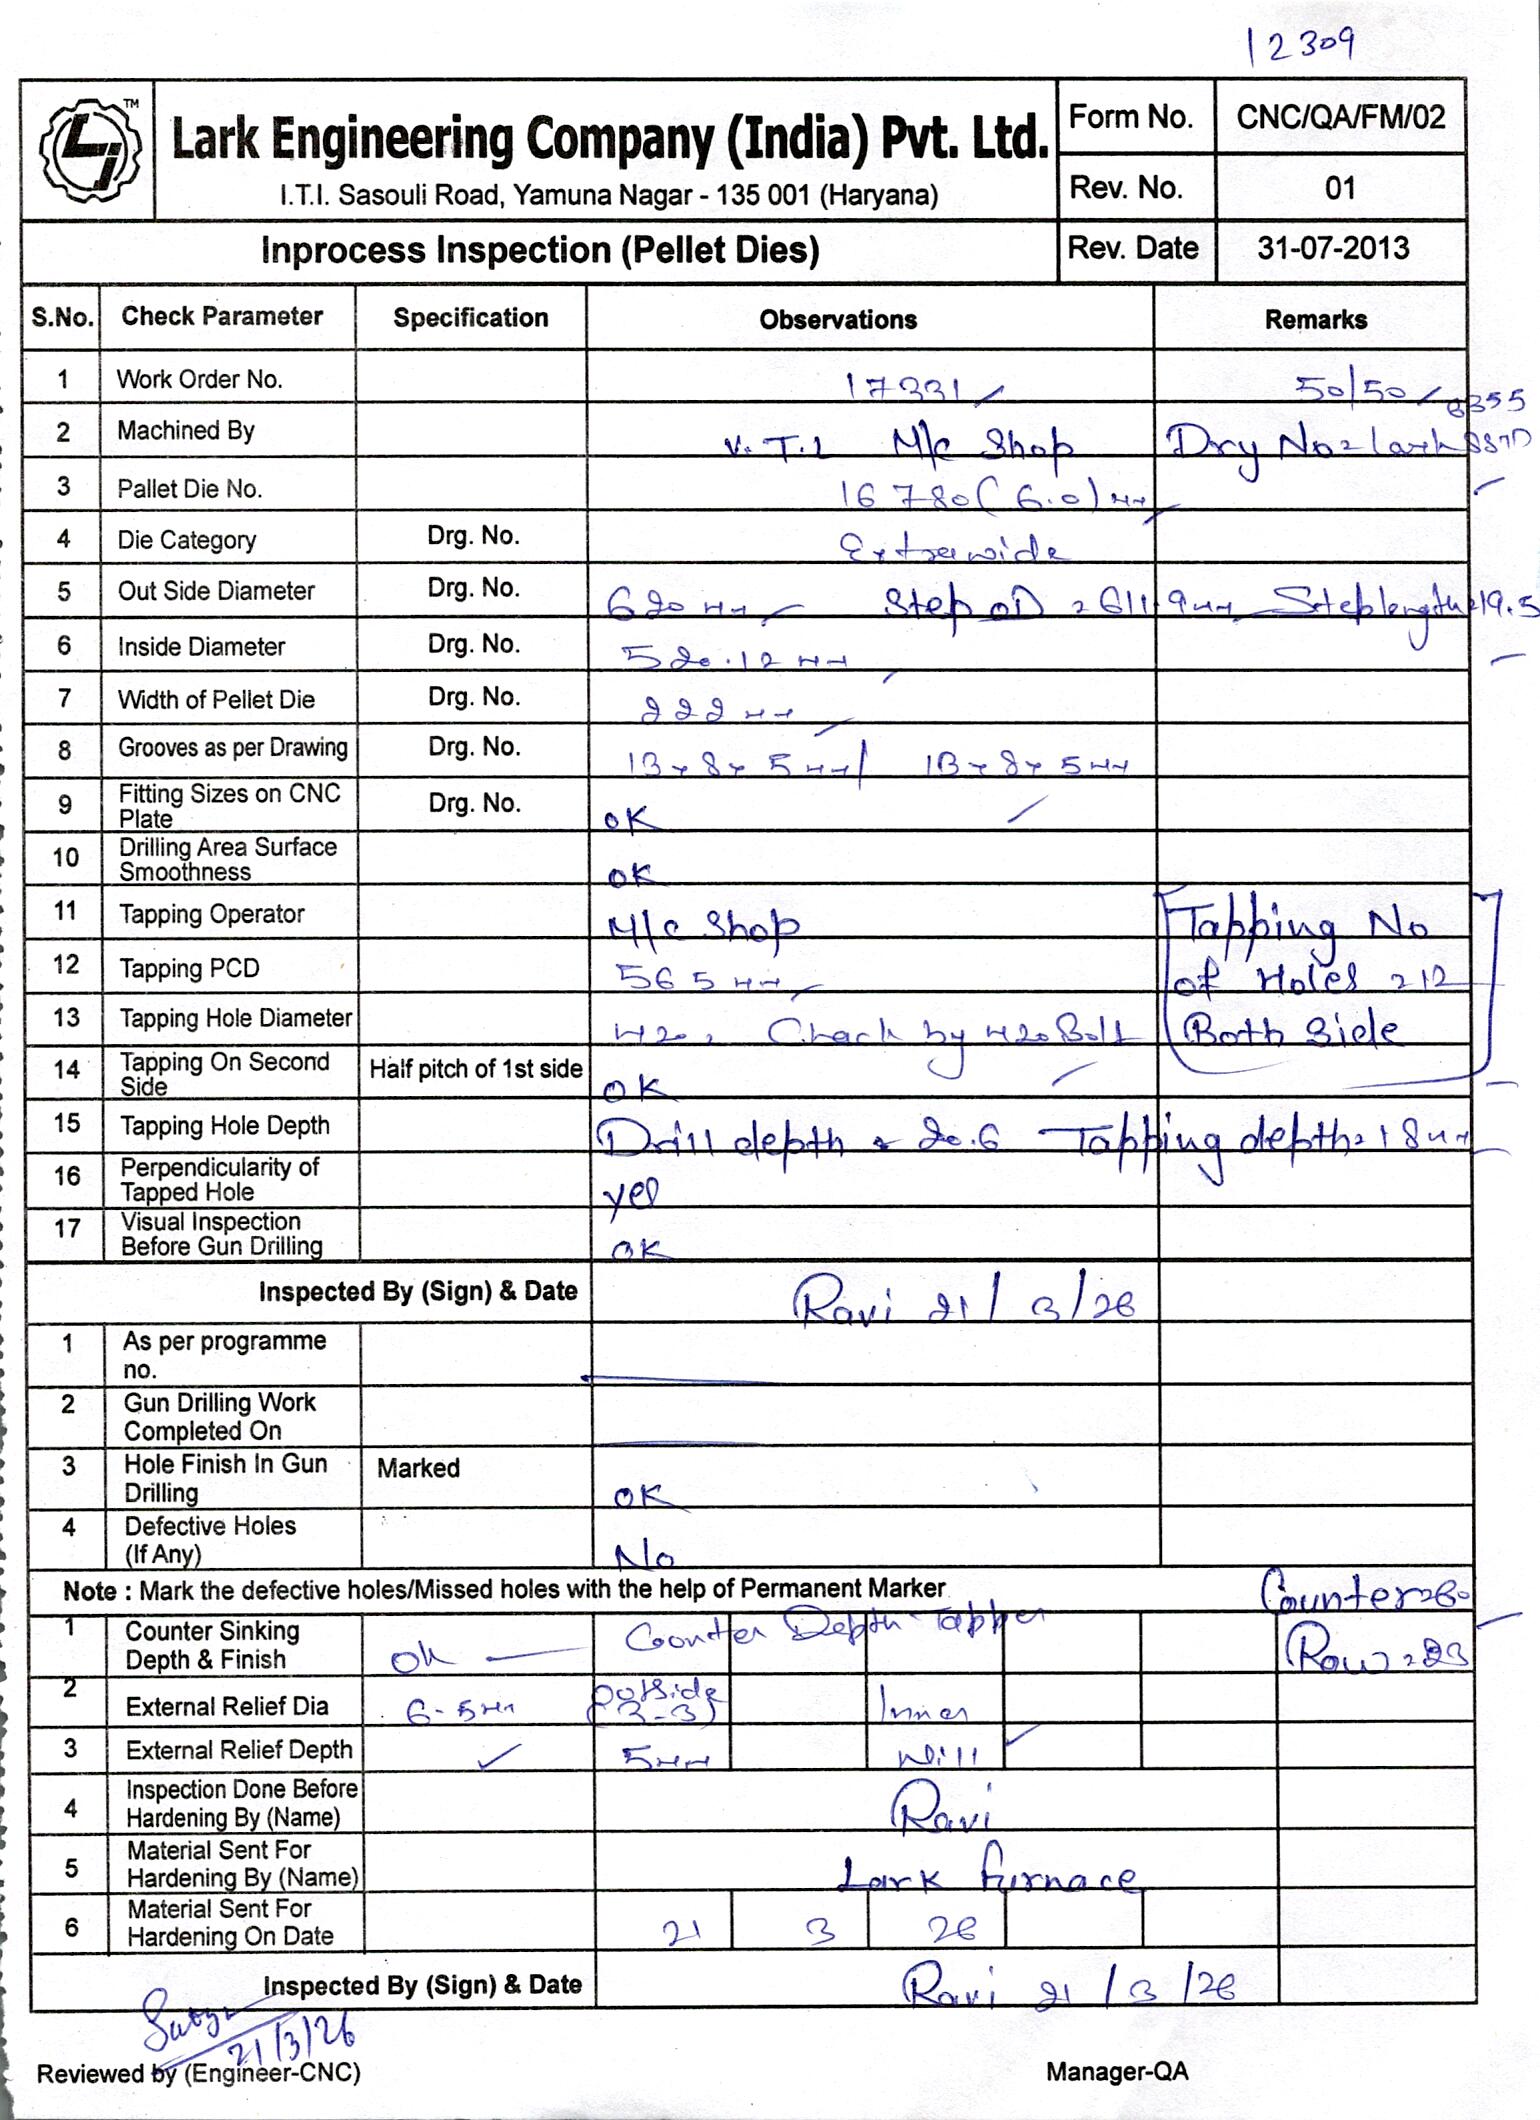 12309
TM
Lark Engineering Company (India) Pvt. Ltd.
I.T.I. Sasouli Road, Yamuna Nagar - 135 001 (Haryana)
Form No. CNC/QA/FM/02
Rev. No. 01
Inprocess Inspection (Pellet Dies) Rev. Date 31-07-2013
S.No. Check Parameter Specification Observations Remarks
1 Work Order No. 17331 50/50
6355
2 Machined By V.T.L M/c Shop Dry No = Lark
3 Pallet Die No. 16780 (6.0) mm
4 Die Category Drg. No. Extrawide
5 Out Side Diameter Drg. No. 620 mm Step OD = 611.9 mm Step length = 19.5
6 Inside Diameter Drg. No. 520.12 mm
7 Width of Pellet Die Drg. No. 222 mm
8 Grooves as per Drawing Drg. No. 13 x 8 x 5 mm / 13 x 8 x 5 mm
9 Fitting Sizes on CNC Plate Drg. No. OK
10 Drilling Area Surface Smoothness OK
11 Tapping Operator M/c Shop Tapping No
12 Tapping PCD 565 mm of Holes = 12
13 Tapping Hole Diameter M20, Check by M20 Bolt Both Side
14 Tapping On Second Side Half pitch of 1st side OK
15 Tapping Hole Depth Drill depth = 20.6 Tapping depth = 18 mm
16 Perpendicularity of Tapped Hole yes
17 Visual Inspection Before Gun Drilling OK
Inspected By (Sign) & Date Ravi 21/3/26
1 As per programme no.
2 Gun Drilling Work Completed On
3 Hole Finish In Gun Drilling Marked OK
4 Defective Holes (If Any) No
Note : Mark the defective holes/Missed holes with the help of Permanent Marker Counter = 60
1 Counter Sinking Depth & Finish OK Counter Depth Tapper Row = 23
2 External Relief Dia 6.5 mm outside (3-3) Inner
3 External Relief Depth 5 mm Nill
4 Inspection Done Before Hardening By (Name) Ravi
5 Material Sent For Hardening By (Name) Lark furnace
6 Material Sent For Hardening On Date 21 3 26
Inspected By (Sign) & Date Ravi 21/3/26
21/3/26
Reviewed by (Engineer-CNC) Manager-QA